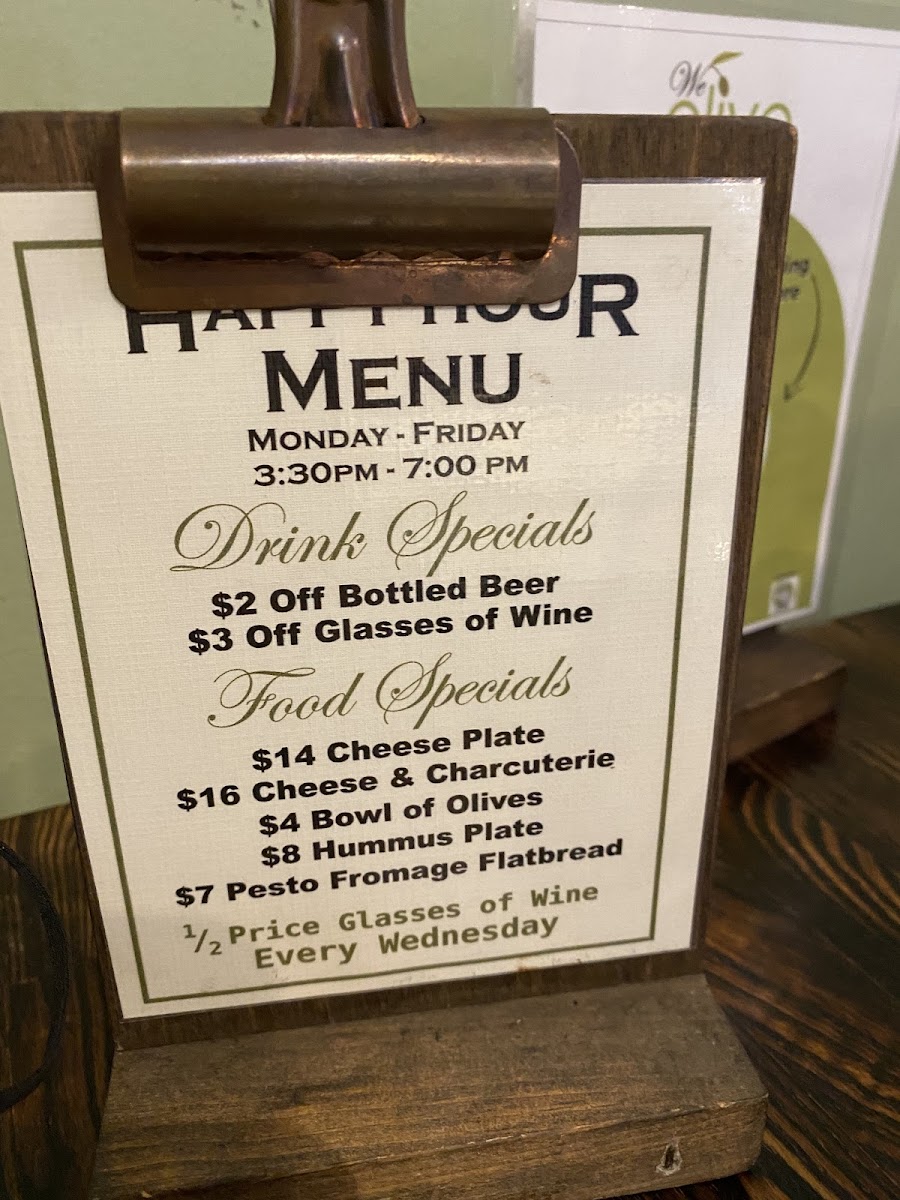 We
olive
HAPPY HOUR
MENU
MONDAY - FRIDAY
3:30PM - 7:00 PM
Drink Specials
$2 Off Bottled Beer
$3 Off Glasses of Wine
Food Specials
$14 Cheese Plate
$16 Cheese & Charcuterie
$4 Bowl of Olives
$8 Hummus Plate
$7 Pesto Fromage Flatbread
1/2 Price Glasses of Wine
Every Wednesday